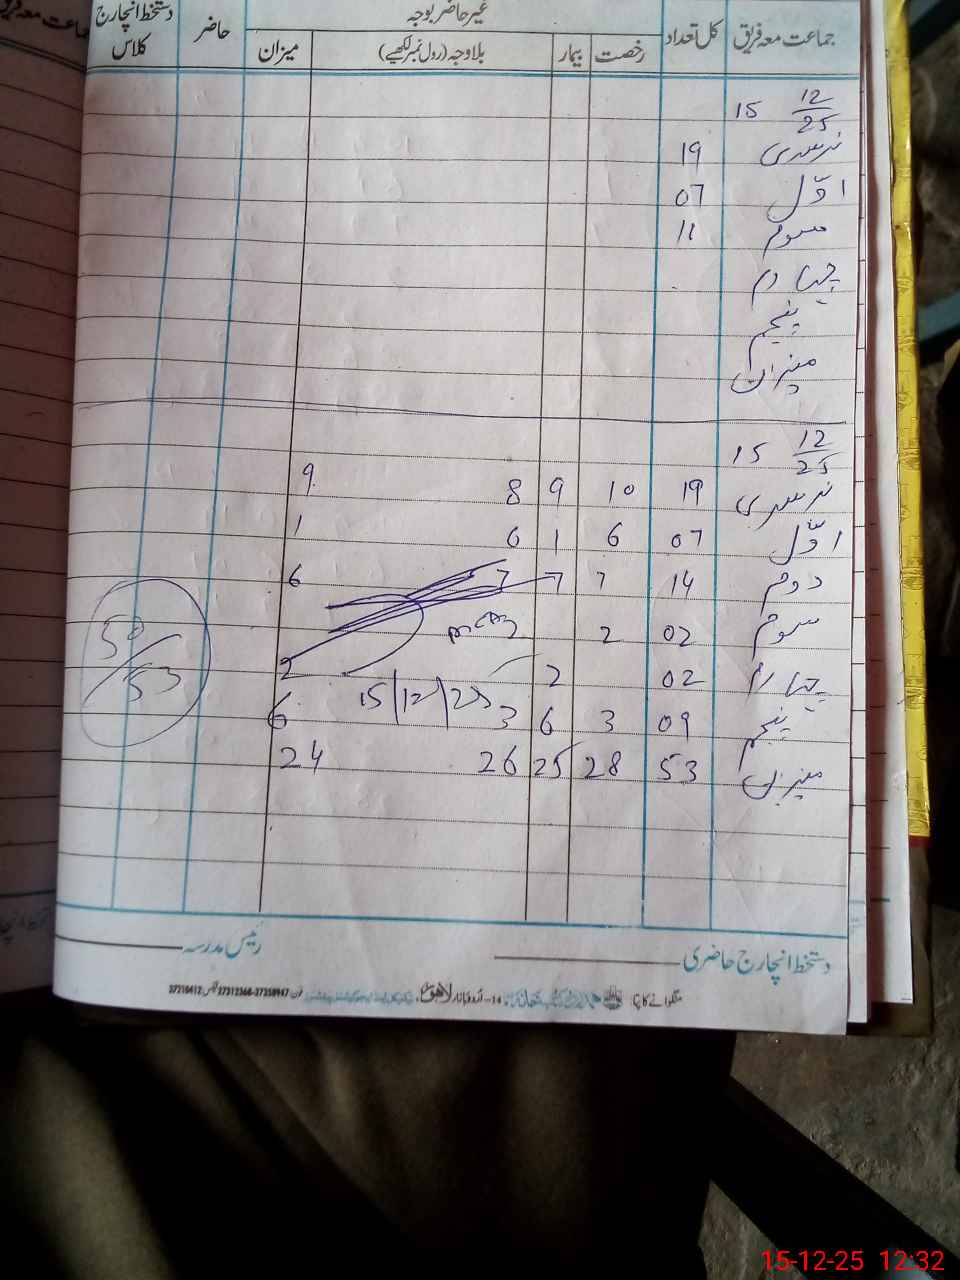 غیر حاضر بوجہ
جماعت معہ فریق کل تعداد رخصت بیمار بلاوجہ (رول نمبر لکھیے) میزان حاضر دستخط انچارج کلاس
15 12/25
نرسری 19
اوّل 07
سوم 11
چہارم
پنجم
میزان
15 12/25
نرسری 19 10 9 8 9
اوّل 07 6 1 6 1
دوم 14 7 7 7 6
سوم 02 2
چہارم 02 2 2
15/12/25
پنجم 09 3 6 3 6
میزان 53 28 25 26 24
50/53
دستخط انچارج حاضری رئیس مدرسہ
منگوانے کا پتہ 14-اردو بازار لاہور فون 37358947-37312368 فیکس 37210412
15-12-25 12:32